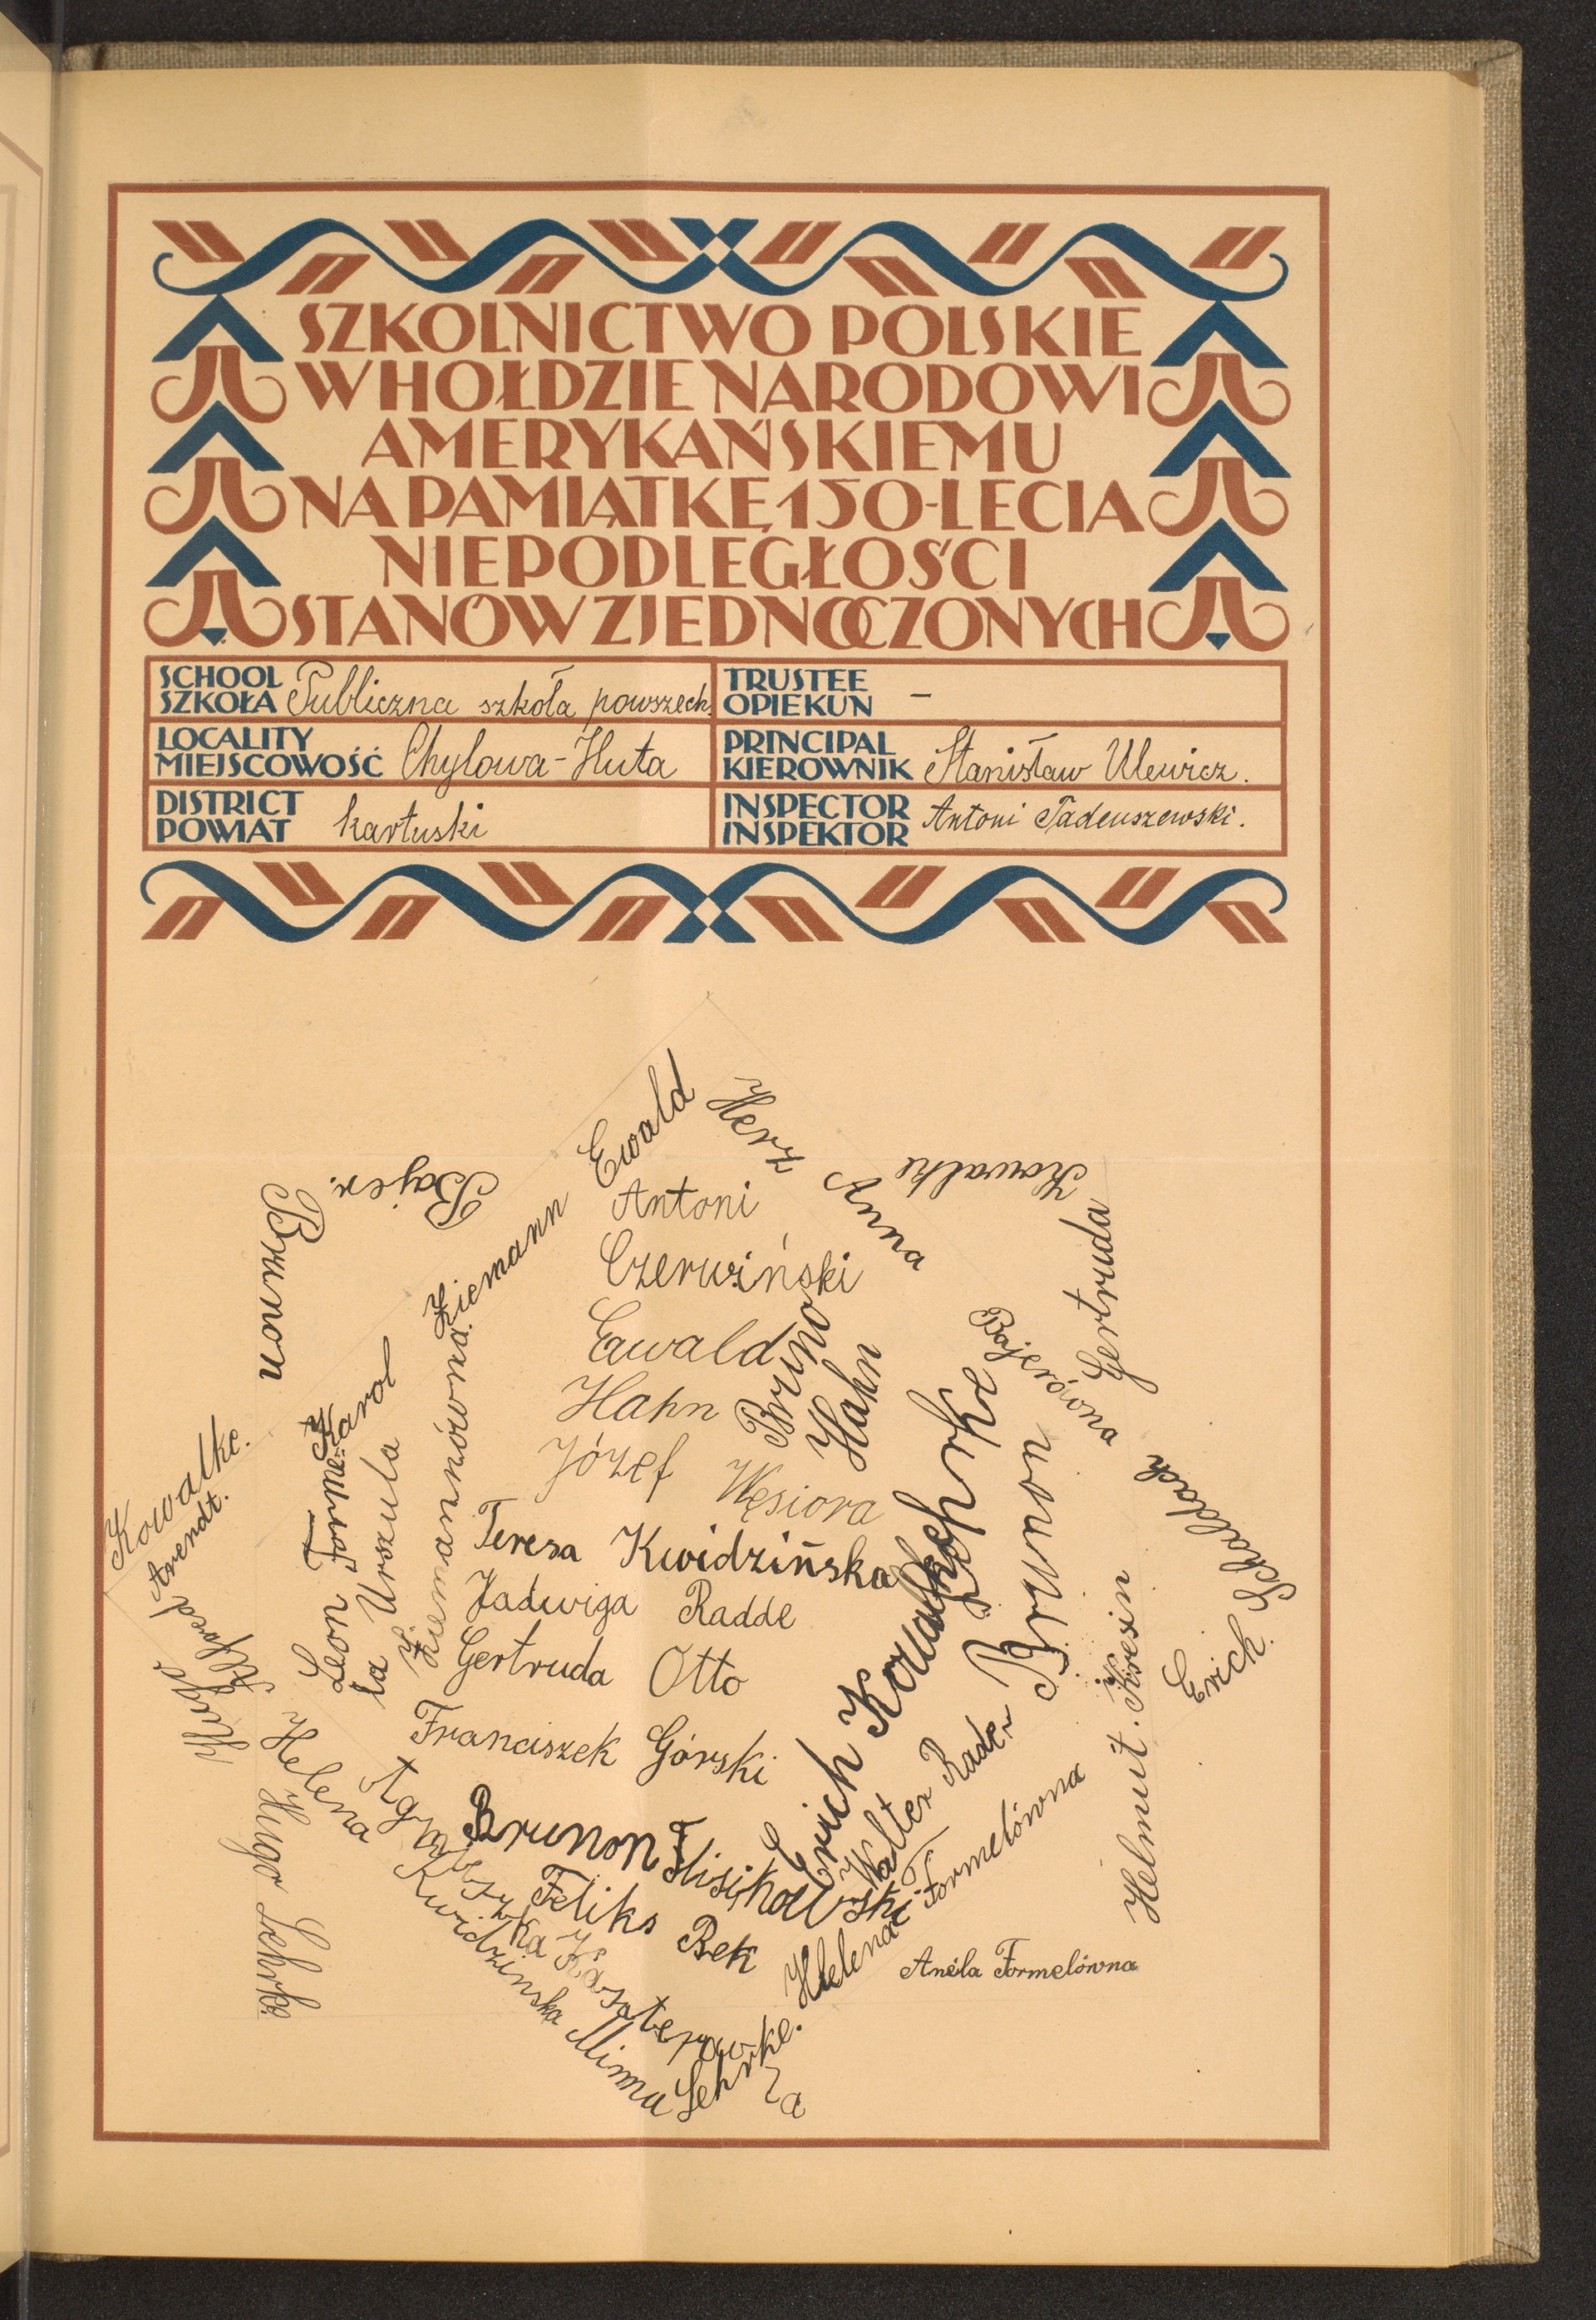 SZKOLNICTWO POLSKIE
W HOŁDZIE NARODOWI
AMERYKAŃSKIEMU
NA PAMIĄTKĘ 150-LECIA
NIEPODLEGŁOŚCI
STANÓW ZJEDNOCZONYCH
SCHOOL
SZKOŁA Publiczna szkoła powszech.
TRUSTEE
OPIEKUN –
LOCALITY
MIEJSCOWOŚĆ Chylowa-Huta
PRINCIPAL
KIEROWNIK Stanisław Ulewicz.
DISTRICT
POWIAT kartuski
INSPECTOR
INSPEKTOR Antoni Tadeuszewski.
Ewald Ziemann
Herz Anna
Brunon Bajer.
Gertruda Kowalke
Antoni
Czerwiński
Eawald
Hahn
Bruno
Hahn
Józef Węsiora
Teresa Kwidzińska
Jadwiga Radde
Gertruda Otto
Franciszek Górski
Brunon Flisikowski
Feliks Bek
Karol
Leon Forme-
la Urszula
Ziemannówna.
Kowalke.
Alfred Arendt.
Hugo Lehrke
Helena
Kwidzinska
Agnieszka Kasaterowna
Minna Lehrke.
Helena Formelówna
Anéla Formelówna
Walter Rade
Erich Kowalke
Brunon
Bajerówna
Erich Schaldach
Helmut. Kresin